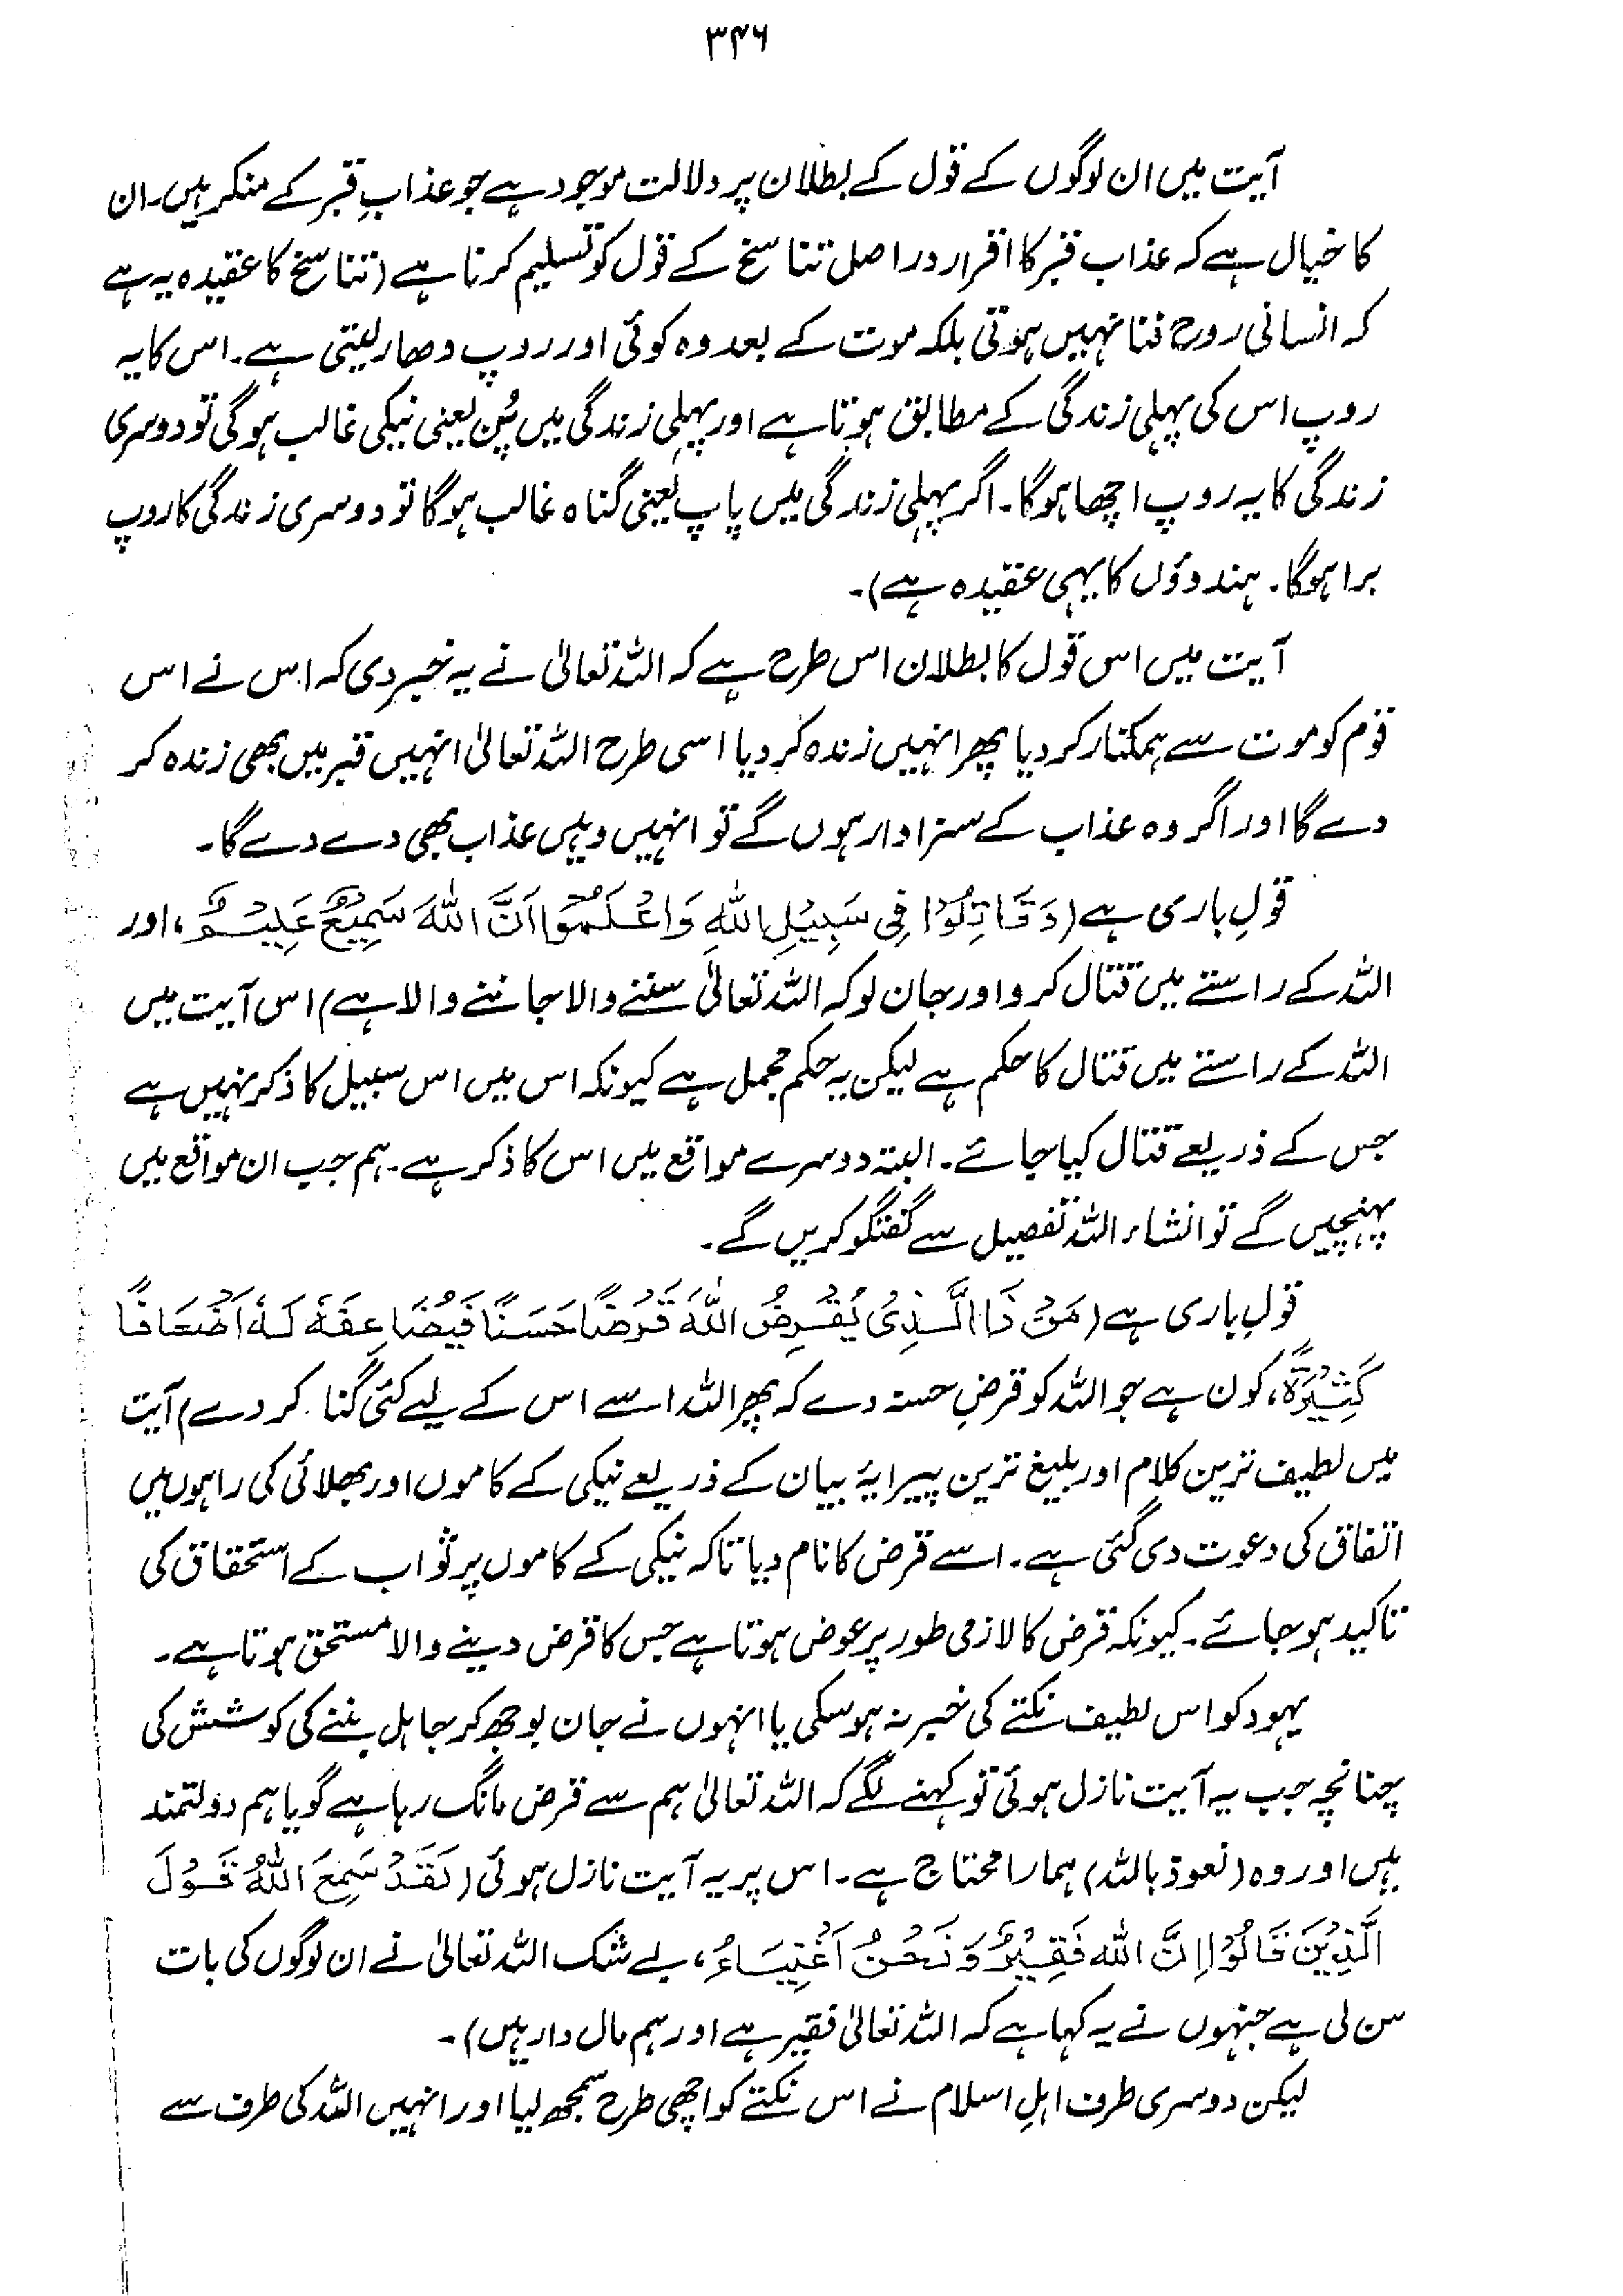 ۳۴۶
آیت میں ان لوگوں کے قول کے بطلان پر دلالت موجود ہے جو عذابِ قبر کے منکر ہیں۔ ان
کا خیال ہے کہ عذاب قبر کا اقرار دراصل تناسخ کے قول کو تسلیم کرنا ہے (تناسخ کا عقیدہ یہ ہے
کہ انسانی روح فنا نہیں ہوتی بلکہ موت کے بعد وہ کوئی اور روپ دھار لیتی ہے۔ اس کا یہ
روپ اس کی پہلی زندگی کے مطابق ہوتا ہے اور پہلی زندگی میں پُن یعنی نیکی غالب ہوگی تو دوسری
زندگی کا یہ روپ اچھا ہوگا۔ اگر پہلی زندگی میں پاپ یعنی گناہ غالب ہوگا تو دوسری زندگی کا روپ
برا ہوگا۔ ہندوؤں کا یہی عقیدہ ہے)۔
آیت میں اس قول کا بطلان اس طرح ہے کہ اللہ تعالیٰ نے یہ خبر دی کہ اس نے اس
قوم کو موت سے ہمکنار کر دیا پھر انہیں زندہ کر دیا اسی طرح اللہ تعالیٰ انہیں قبر میں بھی زندہ کر
دے گا اور اگر وہ عذاب کے سزاوار ہوں گے تو انہیں وہیں عذاب بھی دے دے گا۔
قولِ باری ہے (وَقَاتِلُوْا فِی سَبِیْلِ اللّٰہِ وَاعْلَمُوْا اَنَّ اللّٰہَ سَمِیْعٌ عَلِیْمٌ، اور
اللہ کے راستے میں قتال کرو اور جان لو کہ اللہ تعالیٰ سننے والا جاننے والا ہے) اس آیت میں
اللہ کے راستے میں قتال کا حکم ہے لیکن یہ حکم مجمل ہے کیونکہ اس میں اس سبیل کا ذکر نہیں ہے
جس کے ذریعے قتال کیا جائے۔ البتہ دوسرے مواقع میں اس کا ذکر ہے۔ ہم جب ان مواقع میں
پہنچیں گے تو انشاء اللہ تفصیل سے گفتگو کریں گے۔
قولِ باری ہے (مَنْ ذَا الَّذِیْ یُقْرِضُ اللّٰہَ قَرْضًا حَسَنًا فَیُضَاعِفَہٗ لَہٗ اَضْعَافًا
کَثِیْرَۃً، کون ہے جو اللہ کو قرضِ حسنہ دے کہ پھر اللہ اسے اس کے لیے کئی گنا کر دے) آیت
میں لطیف ترین کلام اور بلیغ ترین پیرایۂ بیان کے ذریعے نیکی کے کاموں اور بھلائی کی راہوں میں
انفاق کی دعوت دی گئی ہے۔ اسے قرض کا نام دیا تاکہ نیکی کے کاموں پر ثواب کے استحقاق کی
تاکید ہو جائے۔ کیونکہ قرض کا لازمی طور پر عوض ہوتا ہے جس کا قرض دینے والا مستحق ہوتا ہے۔
یہود کو اس لطیف نکتے کی خبر نہ ہو سکی یا انہوں نے جان بوجھ کر جاہل بننے کی کوشش کی
چنانچہ جب یہ آیت نازل ہوئی تو کہنے لگے کہ اللہ تعالیٰ ہم سے قرض مانگ رہا ہے گویا ہم دولتمند
ہیں اور وہ (نعوذ باللہ) ہمارا محتاج ہے۔ اس پر یہ آیت نازل ہوئی (لَقَدْ سَمِعَ اللّٰہُ قَوْلَ
الَّذِیْنَ قَالُوْا اِنَّ اللّٰہ فَقِیْرٌ وَنَحْنُ اَغْنِیَاءُ، بے شک اللہ تعالیٰ نے ان لوگوں کی بات
سن لی ہے جنہوں نے یہ کہا ہے کہ اللہ تعالیٰ فقیر ہے اور ہم مال دار ہیں)۔
لیکن دوسری طرف اہلِ اسلام نے اس نکتے کو اچھی طرح سمجھ لیا اور انہیں اللہ کی طرف سے